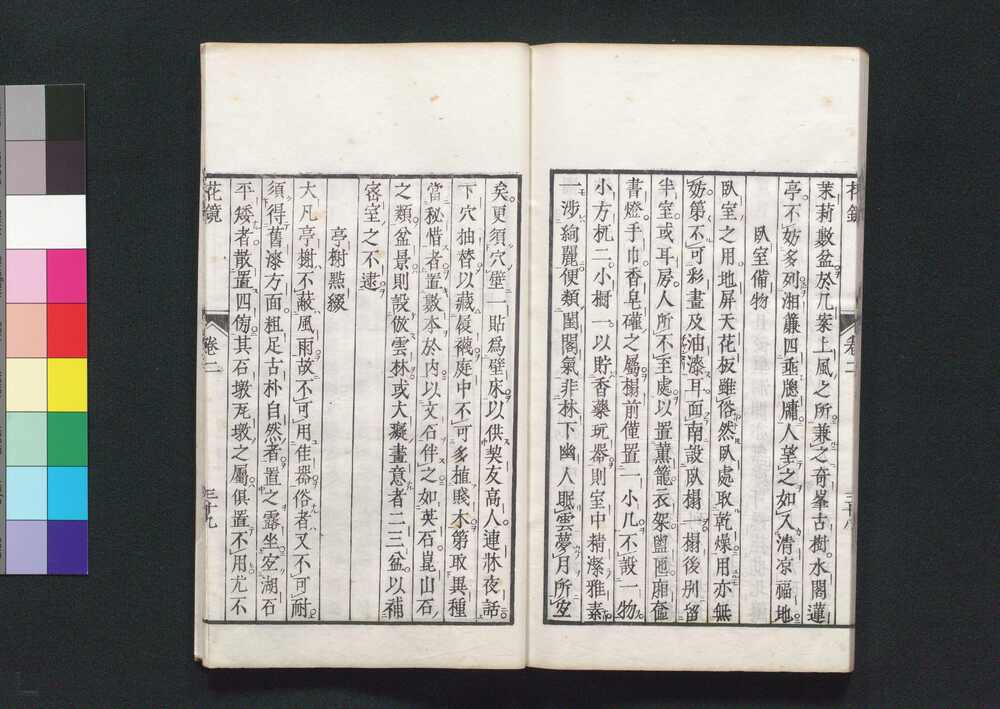 茉莉數盆於几案上風之所兼之奇峯古樹水閣蓮
亭不妨多列湘簾四垂牕牖人望之如入清凉福地
臥室備物
臥室之用地屏天花板雖俗然臥處取乾燥用亦無
妨第不可彩畫及油漆耳面南設臥榻一榻後別留
半室或耳房人所不至處以置薰籠衣架盥匜廂奩
書燈手巾香皂礶之屬榻前僅置一小几不設一物
小方杌二小櫥一以貯香藥玩器則室中精潔雅素
一涉絢麗便類閨閣氣非林下幽人眠雲夢月所宜
花鏡
卷二
三十八
矣更須穴壁一貼為壁床以供契友高人連牀夜話
下穴抽替以藏履襪庭中不可多植賤木第取異種
當秘惜者置數本於內以文石伴之如英石崑山石
之類盆景則設倣雲林或大癡畫意者二三盆以補
密室之不逮
亭榭點綴
大凡亭榭不蔽風雨故不可用佳器俗者又不可耐
須得舊漆方面粗足古朴自然者置之露坐空湖石
平矮者散置四傍其石墩瓦墩之屬俱置不用尤不
花鏡
卷二
三十九